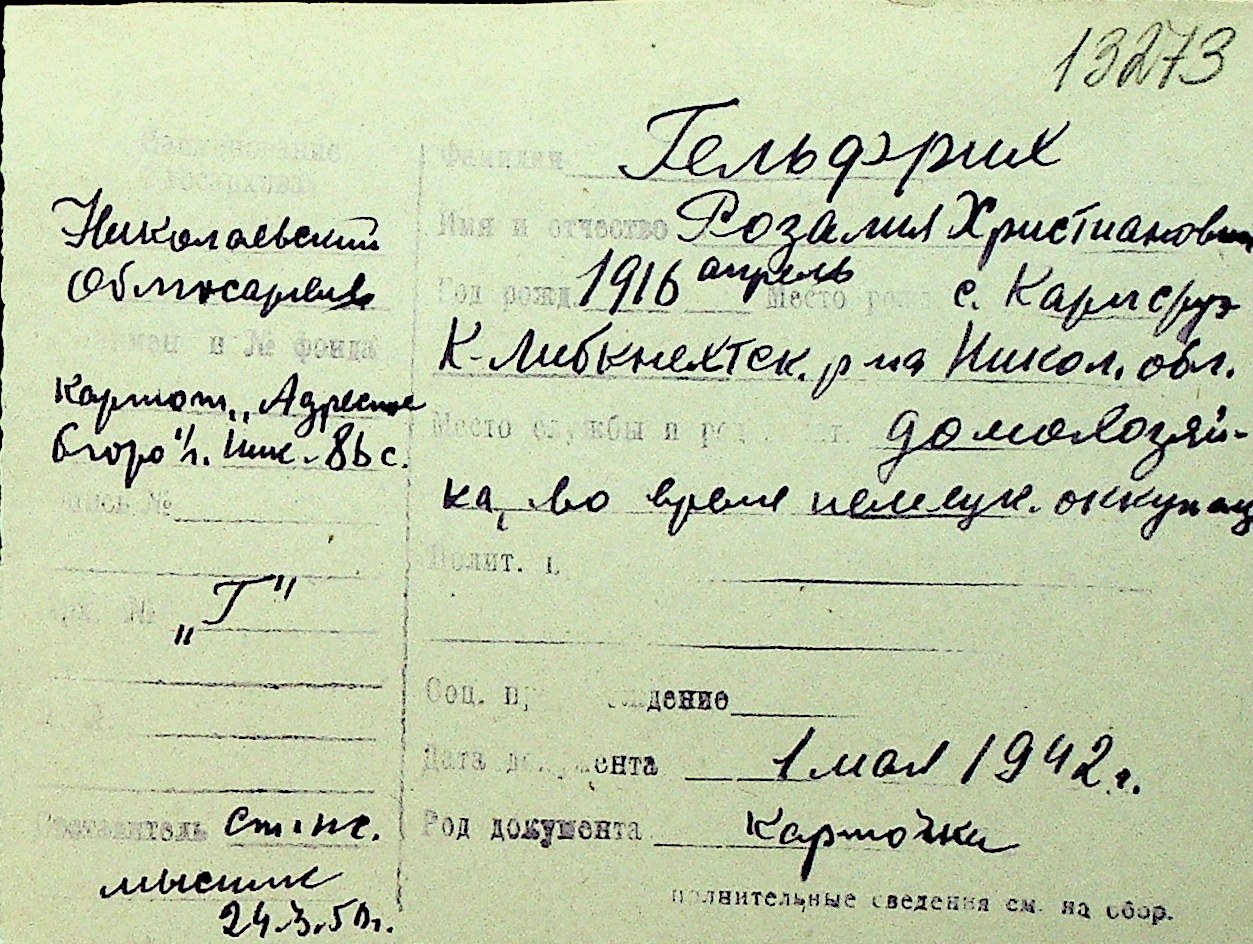 13273
Наименование
госархива
Николаевский
Облгосархив
№ фонда
Картот. „Адресное
бюро" г. Ник.-86 с.
№
„Г"
Составитель ст. нс.
24.3.50г.
Фамилия Гельфрих
Имя и отчество Розалия Христиановн
Год рожд. 1916 апрель Место рож с. Карлсруэ
К-Либкнехтск. р-на Никол. обл.
Место службы и домохозяй-
ка, во время немецк. оккупац
Полит.
Соц. п дение
Дата документа 1 мая 1942 г.
Род документа Карточка
полнительные сведения см. на обор.